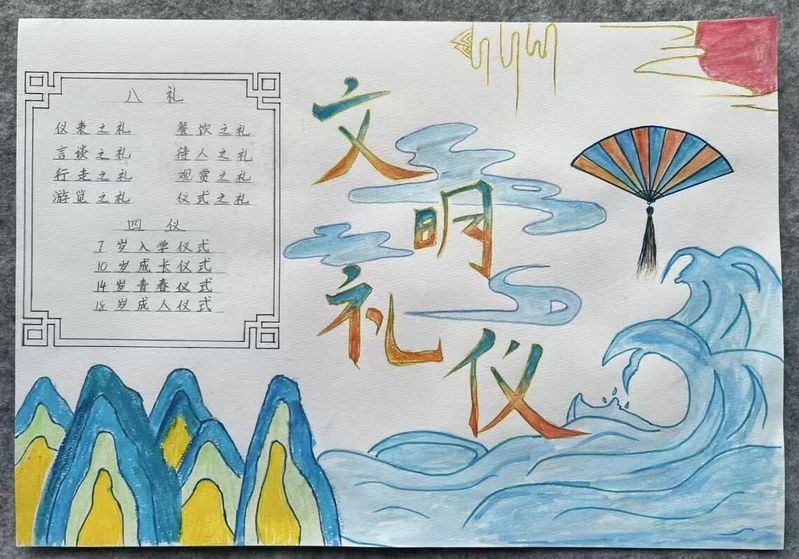 八礼
仪表之礼 餐饮之礼
言谈之礼 待人之礼
行走之礼 观赏之礼
游览之礼 仪式之礼
四仪
7岁入学仪式
10岁成长仪式
14岁青春仪式
18岁成人仪式
文明礼仪